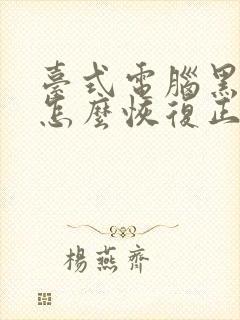 臺式電腦黑
怎麼恢復正
楊燕齊